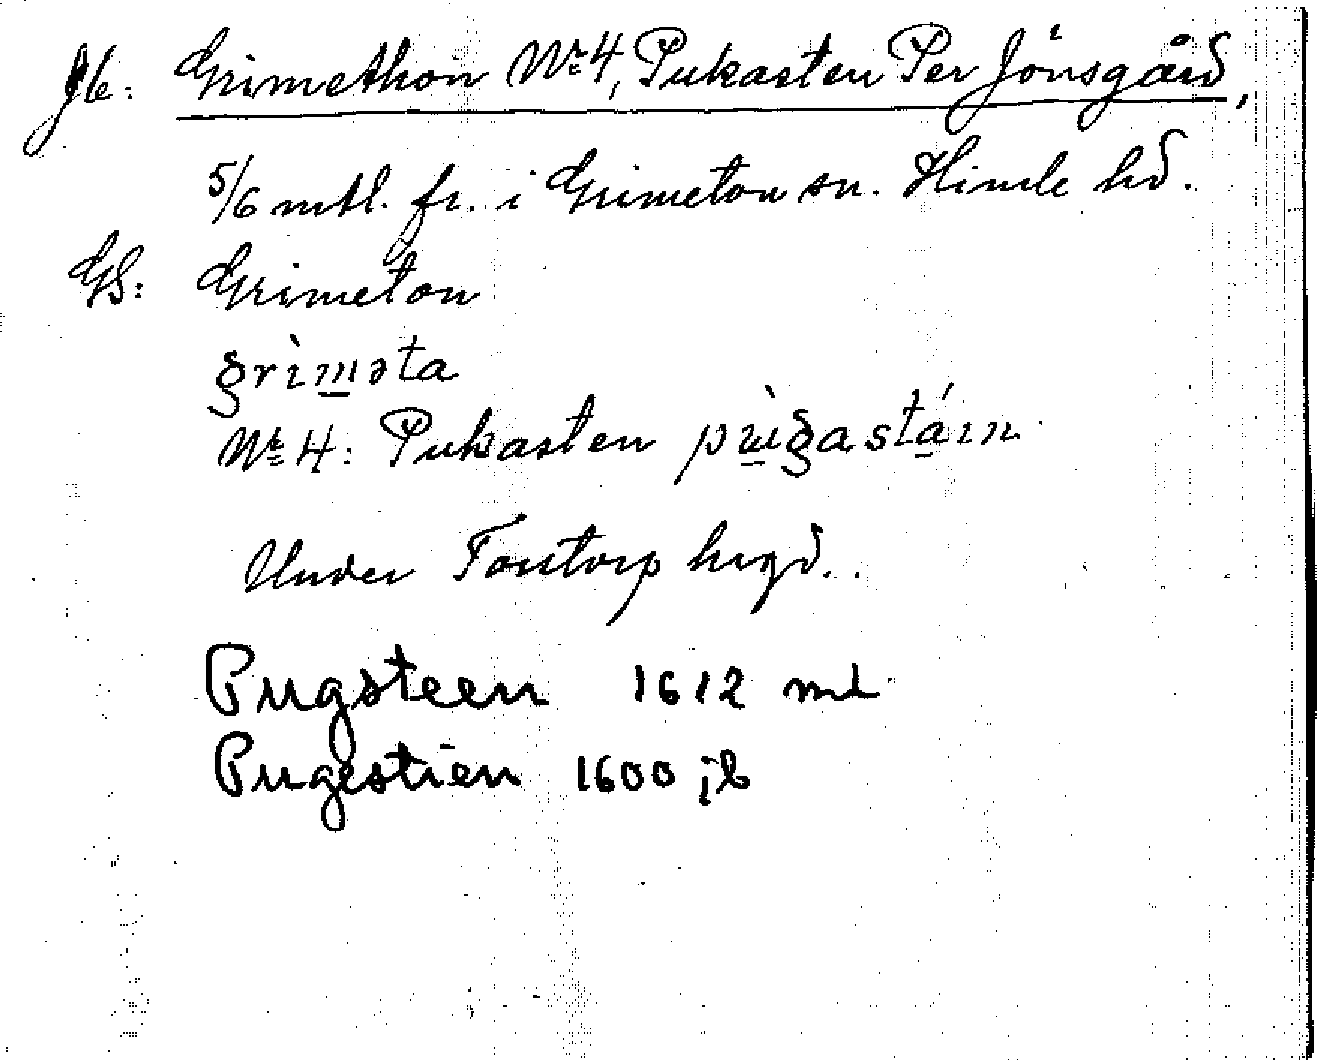 Jb: Grimethon Nr 4, Pukasten Per Jönsgård,
5/6 mtl. fr. i Grimeton sn. Himle hd.
GS: Grimeton
grìməta
Nr 4: Pukasten pùgastáın
Under Torstorp hrgd.
Pugsteen 1612 ml
Pugestien 1600 jb